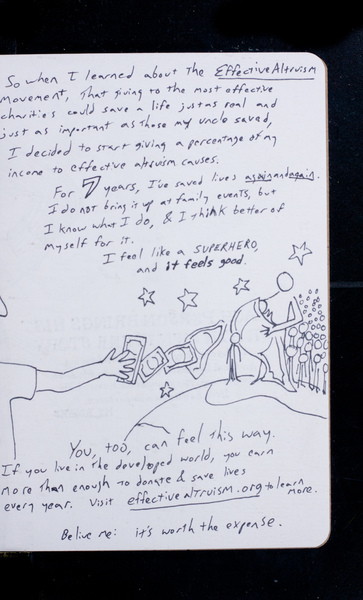 So when I learned about the Effective Altruism
movement, that giving to the most effective
charities could save a life just as real and
just as important as those my uncle saved,
I decided to start giving a percentage of my
income to effective altruism causes.
For 7 years, I've saved lives again and again.
I do not bring it up at family events, but
I know what I do, & I think better of
myself for it.
I feel like a SUPERHERO,
and it feels good.
You, too, can feel this way.
If you live in the developed world, you earn
more than enough to donate & save lives
every year. Visit effectivealtruism.org to learn
more.
Belive me: it's worth the expense.